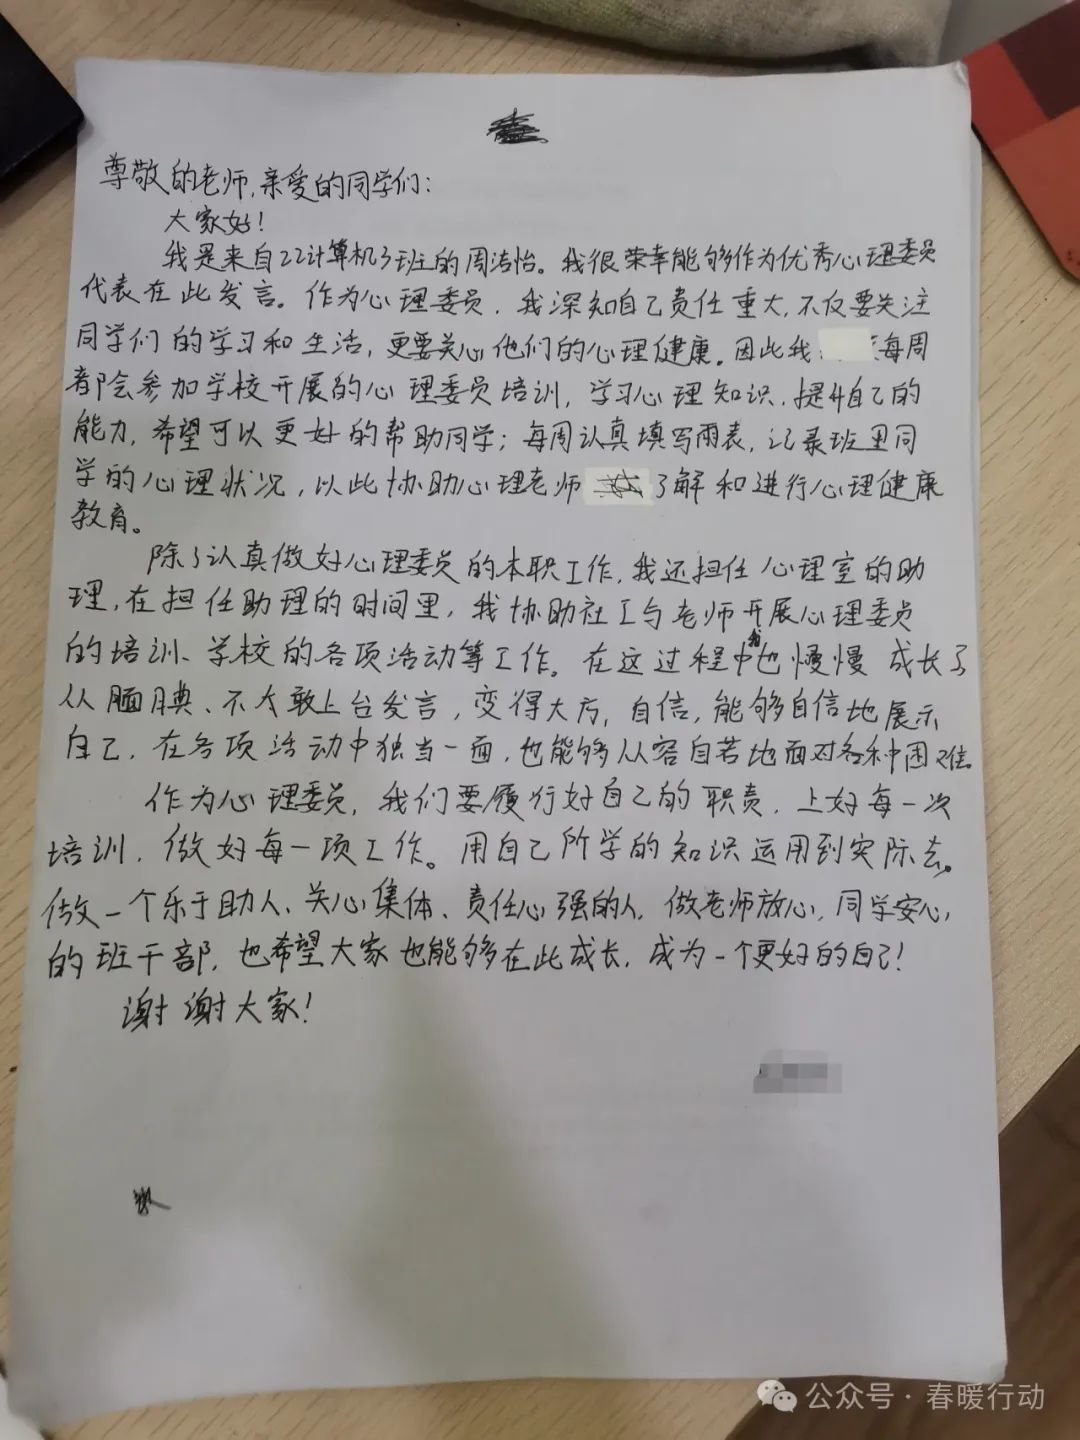 尊敬的老师,亲爱的同学们:
大家好!
我是来自22计算机3班的周洁怡。我很荣幸能够作为优秀心理委员
代表在此发言。作为心理委员,我深知自己责任重大,不仅要关注
同学们的学习和生活,更要关心他们的心理健康。因此我 每周
都会参加学校开展的心理委员培训,学习心理知识,提升自己的
能力,希望可以更好的帮助同学;每周认真填写雨表,记录班里同
学的心理状况,以此协助心理老师 了解和进行心理健康
教育。
除了认真做好心理委员的本职工作,我还担任心理室的助
理,在担任助理的时间里,我协助社工与老师开展心理委员
的培训、学校的各项活动等工作。在这过程中我也慢慢成长了
从腼腆、不太敢上台发言,变得大方,自信,能够自信地展示
自己,在各项活动中独当一面,也能够从容自若地面对各种困难。
作为心理委员,我们要履行好自己的职责,上好每一次
培训,做好每一项工作。用自己所学的知识运用到实际去。
做一个乐于助人、关心集体、责任心强的人,做老师放心,同学安心
的班干部,也希望大家也能够在此成长,成为一个更好的自己!
谢谢大家!
公众号·春暖行动